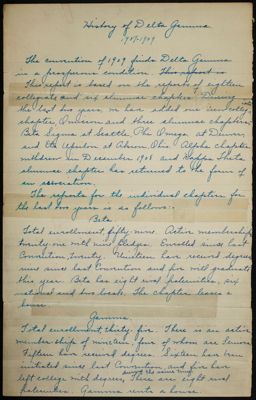 History of Delta Gamma
1907-1909
The convention of 1909 finds Delta Gamma
in a prosperous condition. This report is
This report is based on the reports of eighteen
collegiate and six alumnae chapters. During
the last two years, we have added one new colleg-
chapter, Omicron and three alumnae chapters,
Beta Sigma at Seattle, Phi Omega, at Denver,
and Upsilon at Akron, Ohio. Alpha chapter
withdrew in December 1908 and Kappa Theta
alumnae chapter has returned to the form of
an association.
The reports for the individual chapters for
the last two years is as follows:-
Beta.
Total enrollment, fifty-nine. Active membership
twenty-one with nine pledges. Enrolled since last
Convention, twenty. Nineteen have received degrees
since last convention and five will graduate
this year. Beta has eight rival fraternities, six
national and two locals. The chapter leases a
house.
Gamma.
Total enrollment, thirty-five. There is an active
membership of nineteen four of whom are Seniors.
Fifteen have received degrees. Sixteen have been
initiated since last Convention, and five have
during the same time
left college with degrees. There are eight rival
fraternities. Gamma rents a house.